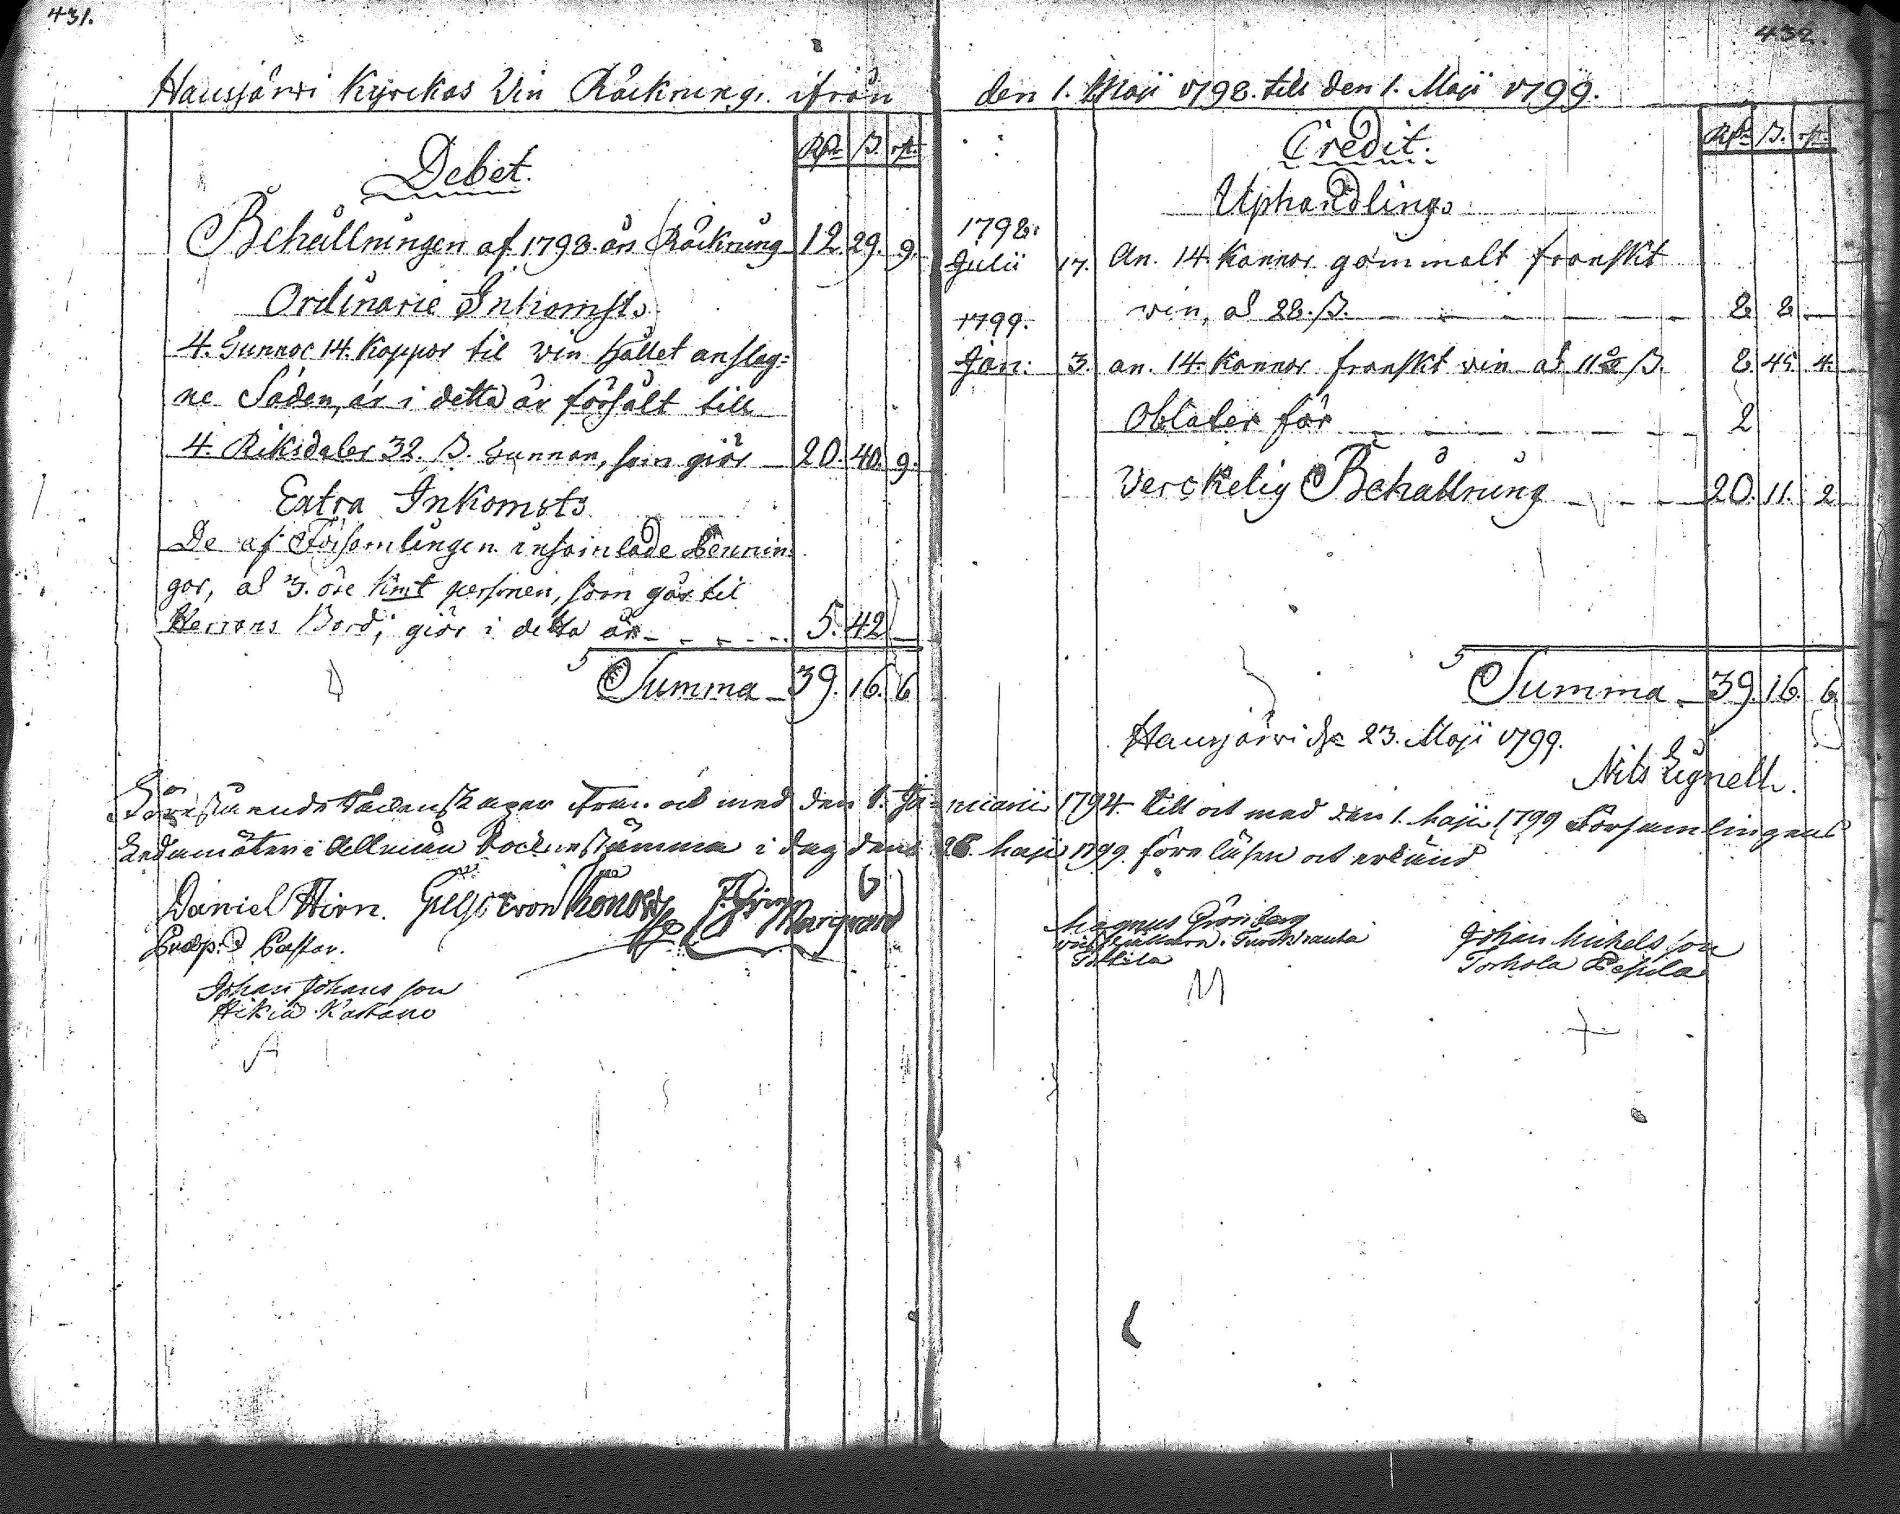 431.
Hausjärvi Kyrckas Vin Räckning, ifrån
Debet.
Rdr ß. rst.
Behållningen af 1798. års Räckning 12. 29. 9.
Ordinarie Inkomst.
4. Tunnor 14. Kappor til vin hållet anslag=
ne Säden, är i detta år försålt till
4. Riksdaler 32. ß. Tunnan, som giör 20. 40. 9.
Extra Inkomst
De af Församlingen insamlade Pennin=
gar, ad 3. öre Kmt personen, som går til
Herrans Bord, giör i detta år 5. 42 —
Summa 39. 16. 6
432.
den 1. Maji 1798. till den 1. Maji 1799.
Credit.
Rdr ß. rst.
Uphandling.
1798.
Julii 17. An. 14. Kannor gammalt franskt
vin, ad 28. ß. 8 8 —
1799.
Jan: 3. an. 14. Kannor franskt vin ad ß. 8. 45. 4.
Oblater för 2
Verckelig Behållning 20. 11. 2
Summa 39. 16. 6
Hausjärvi d. 23. Maji 1799.
Nils Lignell.
Förestående Räckenskaper ifrån och med den 1. Januarii 1794 till och med den 1. Maji 1799 Församlingens
Ledamöter i Allmän Sockenstämma i dag den 26. Maji 1799. föreläsen och erkänd
Daniel Hirn. von
Præp. & Pastor.
Magnus Grönberg
Johan Michelsson
Torhola Pessila
Johan Johansson
Hikiä
M